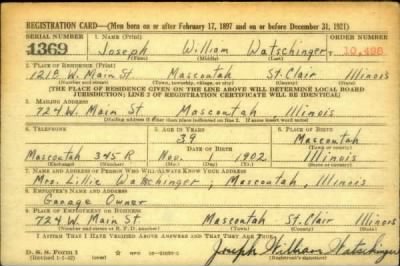 REGISTRATION CARD—(Men born on or after February 17, 1897 and on or before December 31, 1921)
SERIAL NUMBER 1. NAME (Print) ORDER NUMBER
1369 Joseph William Watschinger 10,496
(First) (Middle) (Last)
2. PLACE OF RESIDENCE (Print)
121B W. Main St. Mascoutah St. Clair Illinois
(Number and street) (Town, township, village, or city) (County) (State)
[THE PLACE OF RESIDENCE GIVEN ON THE LINE ABOVE WILL DETERMINE LOCAL BOARD
JURISDICTION; LINE 2 OF REGISTRATION CERTIFICATE WILL BE IDENTICAL]
3. MAILING ADDRESS
724 W. Main St. Mascoutah Illinois
(Mailing address if other than place indicated on line 2. If same insert word same)
4. TELEPHONE 5. AGE IN YEARS 6. PLACE OF BIRTH
39 Mascoutah
DATE OF BIRTH (Town or county)
Mascoutah 345 R Nov. 1 1902 Illinois
(Exchange) (Number) (Mo.) (Day) (Yr.) (State or country)
7. NAME AND ADDRESS OF PERSON WHO WILL ALWAYS KNOW YOUR ADDRESS
Mrs. Lillie Watschinger, Mascoutah, Illinois
8. EMPLOYER'S NAME AND ADDRESS
Garage Owner
9. PLACE OF EMPLOYMENT OR BUSINESS
724 W. Main St. Mascoutah St. Clair Illinois
(Number and street or R. F. D. number) (Town) (County) (State)
I AFFIRM THAT I HAVE VERIFIED ABOVE ANSWERS AND THAT THEY ARE TRUE.
D. S. S. FORM 1
(Revised 1-1-42) (over) Joseph William Watschinger